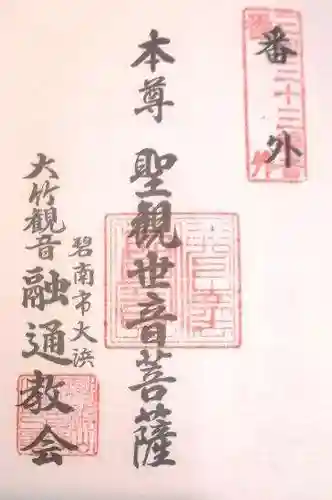 番外
本尊 聖観世音菩薩
碧南市大浜
大竹観音 融通教会